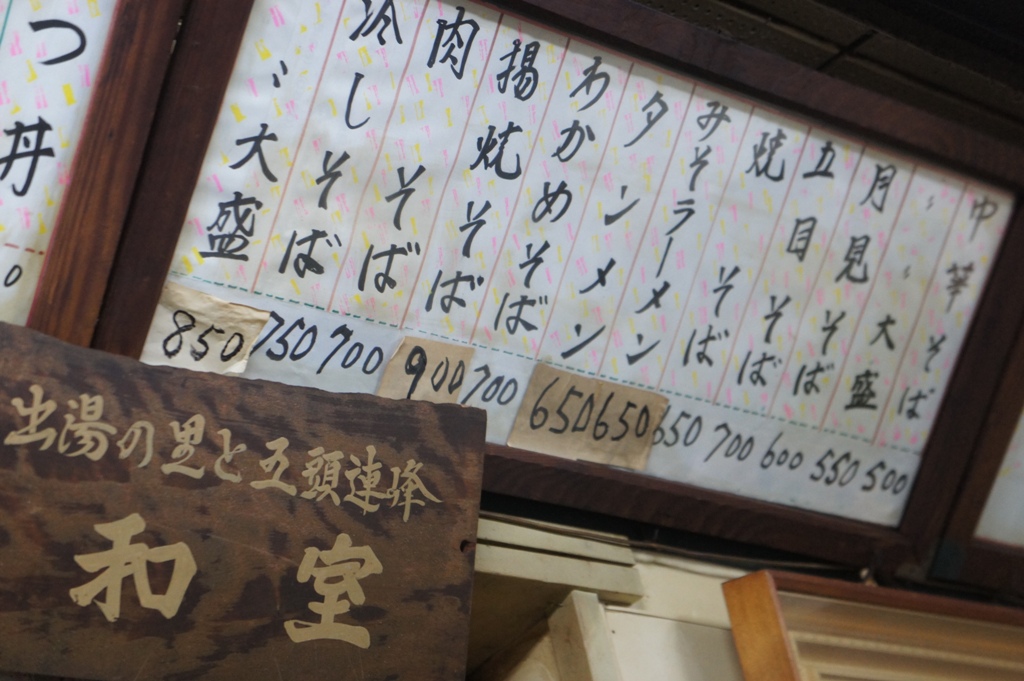 中華そば 500
〃 〃 大盛 550
月見そば 600
五目そば 700
焼そば 650
みそラーメン 650
タンメン 650
わかめそば 700
揚焼そば 900
肉そば 700
冷しそば 750
〃大盛 850
つ丼
0
出湯の里と五頭連峰
和室